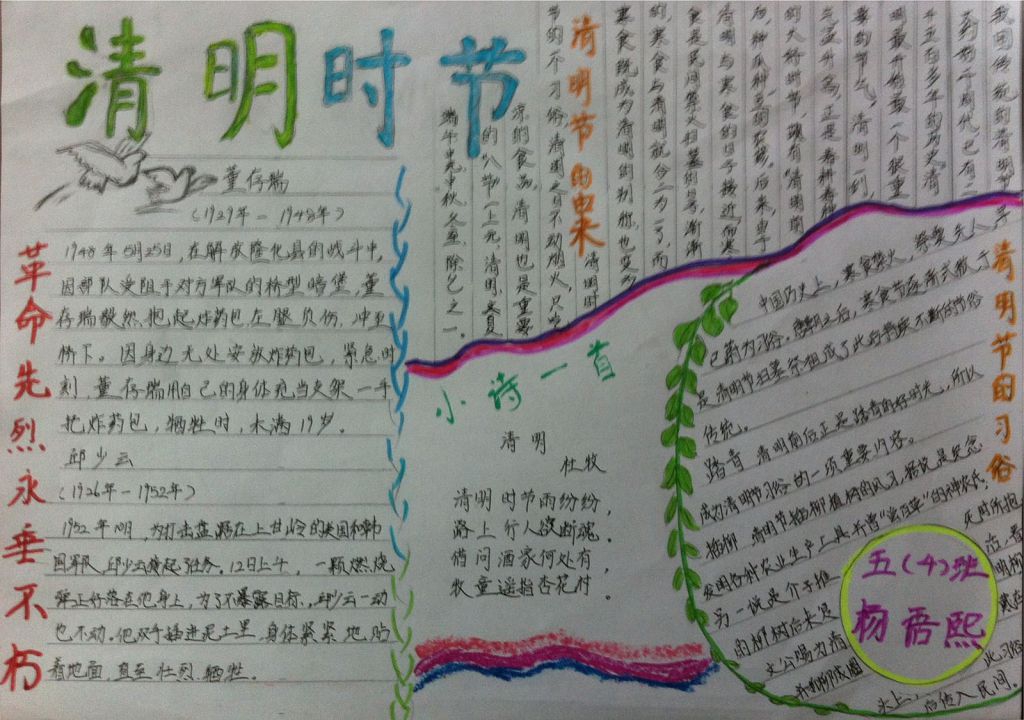 清明时节
董存瑞
(1929年－1948年)
革命先烈永垂不朽
1948年5月25日,在解放隆化县的战斗中,
因部队受阻于对方军队的桥型暗堡,董
存瑞毅然抱起炸药包,左腿负伤,冲至
桥下。因身边无处安放炸药包,紧急时
刻,董存瑞用自己的身体充当支架,一手
托炸药包,牺牲时,未满19岁。
邱少云
(1926年－1952年)
1952年10月,为打击盘踞在上甘岭的美国和韩
国军队,邱少云接起任务。12日上午,一颗燃烧
弹正好落在他身上,为了不暴露目标,邱少云一动
也不动。他双手插进泥土里,身体紧紧地贴
着地面,直至壮烈牺牲。
清明节的由来
我国传统的清明节
大约始于周代,已有二
千五百多年的历史。清
明最开始是一个很重
要的节气,清明一到,
气温升高,正是春耕春种
的大好时节,故有"清明前
后,种瓜种豆"的农谚。后来,由于
清明与寒食的日子接近,而寒
食是民间禁火扫墓的日子,渐渐
的,寒食与清明就合二为一了,而
寒食既成为清明的别称,也变为
清明时
节的一个习俗,清明之日不动烟火,只吃
凉的食品。清明也是重要
的"八节"(上元,清明,立夏,
端午,中元,中秋,冬至,除夕)之一。
小诗一首
清明
杜牧
清明时节雨纷纷,
路上行人欲断魂。
借问酒家何处有,
牧童遥指杏花村。
清明节的习俗
中国历史上,寒食禁火,祭奠先人,早
已蔚为习俗。唐朝之后,寒食节逐渐式微,于
是清明节扫墓祭祖成了此后持续不断的节俗
传统。
踏青 清明前后正是踏青的好时光,所以
成为清明节习俗的一项重要内容。
插柳 清明节插柳植树的风习,据说是纪念
发明各种农业生产工具并尝"尝百草"的神农氏。
另一说是介子推
死时所抱
的柳树后来
文公赐为清
此习俗
后传入民间。
五(4)班
杨语熙